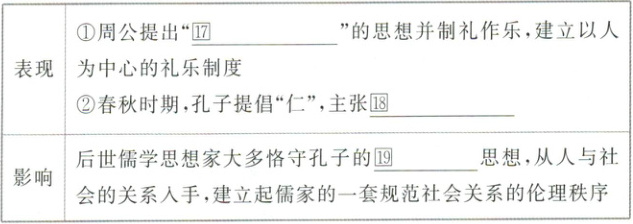 ①周公提出“[17]____________”的思想并制礼作乐,建立以人
为中心的礼乐制度
表现
②春秋时期,孔子提倡“仁”,主张[18]____________
后世儒学思想家大多恪守孔子的[19]________思想,从人与社
影响
会的关系入手,建立起儒家的一套规范社会关系的伦理秩序